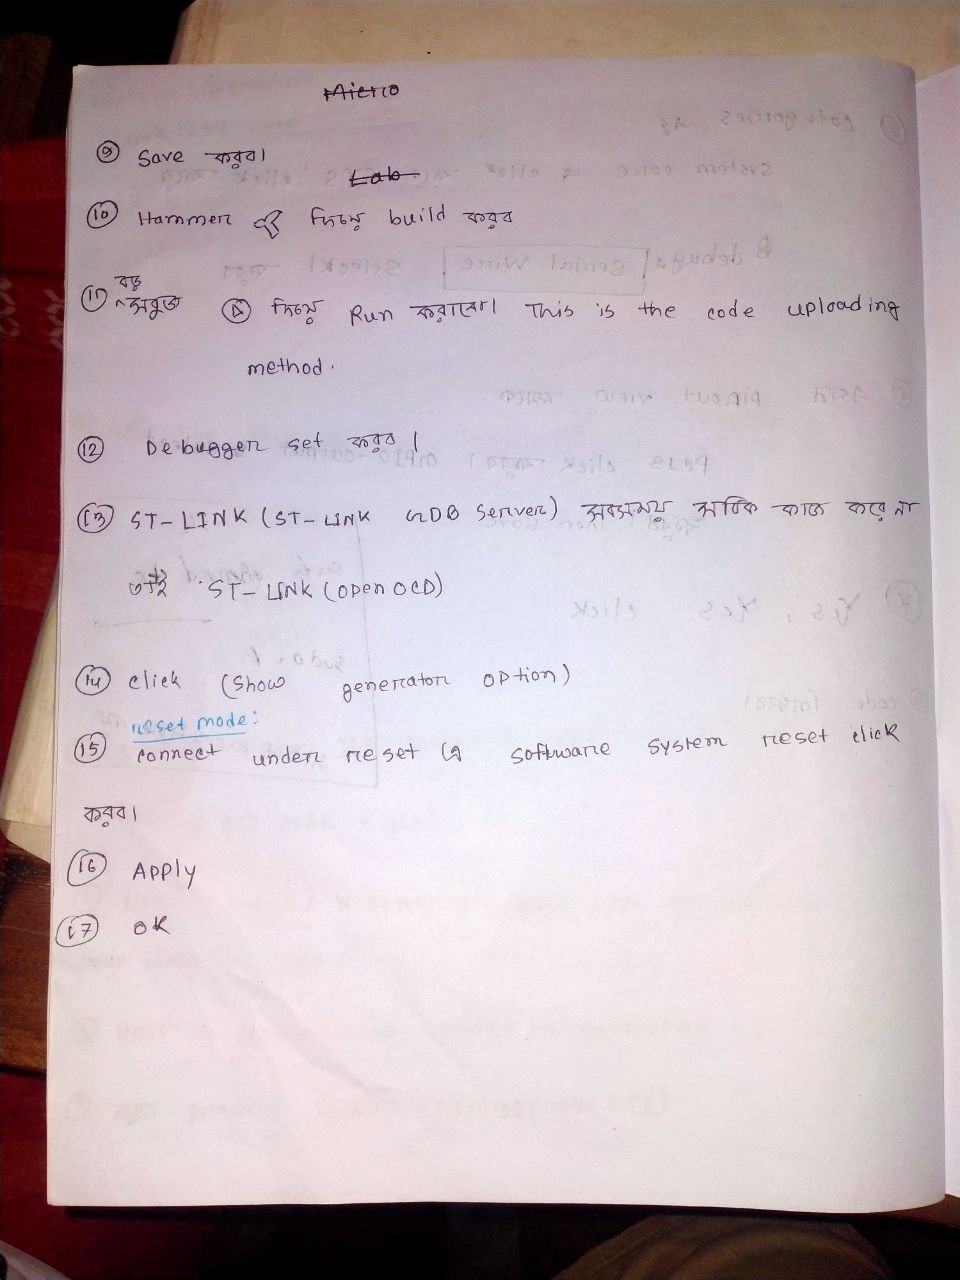 Micro
9 Save করব।
Lab
10 Hammer দিয়ে build করব
বড়
11 সবুজ দিয়ে Run করাবো। This is the code uploading
method.
12 Debugger set করব।
13 ST-LINK (ST-LINK GDB Server) সবসময় সঠিক কাজ করে না
তাই ST-LINK (OpenOCD)
14 click (Show generator option)
reset mode:
15 connect under reset এ software system reset click
করব।
16 Apply
17 OK